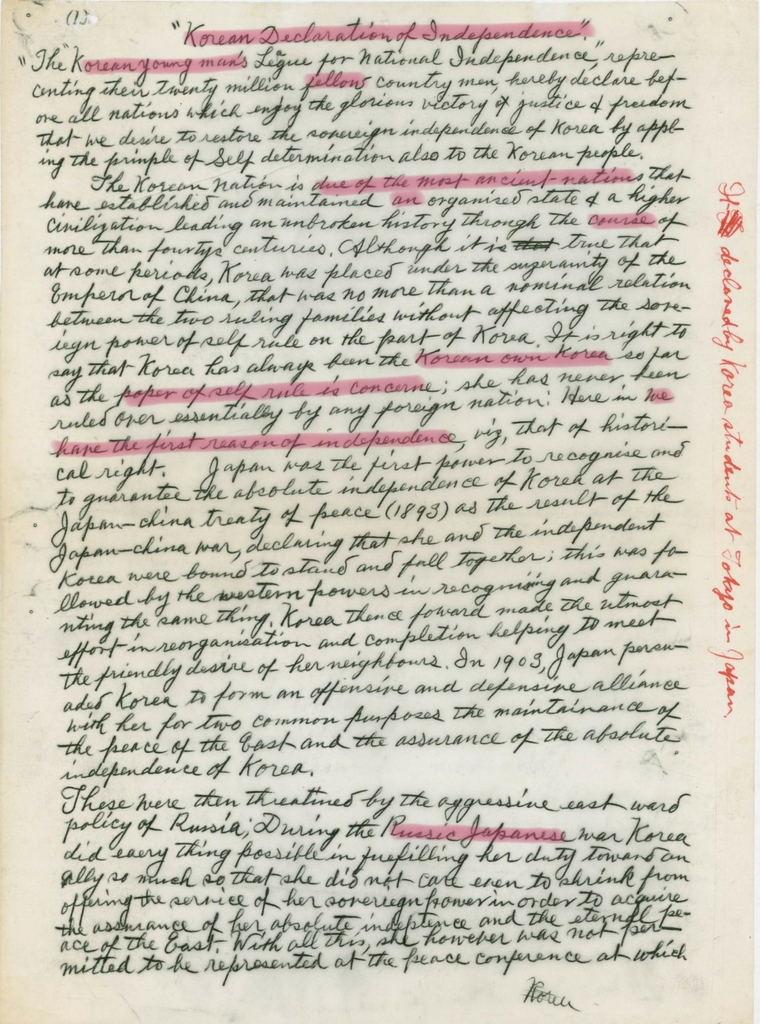 (1).
"Korean Declaration of Independence".
"The "Korean young man's Legue for National Independence", repre-
centing their twenty million fellow country men, hereby declare bef-
ore all nations which enjoy the glorious victory of justice & freedom
that we desire to restore the sovereign independence of Korea by appl-
ing the prinple of Self determination also to the Korean people.
The Korean Nation is due of the most ancient nations that
have established and maintained an organised state & a higher
civilization leading an unbroken history through the course of
more than fourtys centuries. Although it is true that
at some periods, Korea was placed under the sugerainity of the
Emperor of China, that was no more than a nominal relation
between the two ruling families without affecting the sove-
reign power of self rule on the part of Korea. It is right to
say that Korea has always been the Korean own Korea so far
as the poper of self rule is concerne; she has never been
ruled over essentially by any foreign nation: Here in we
have the first reason of independence, viz, that of histori-
cal right. Japan was the first power to recognise and
to guarantee the absolute independence of Korea at the
Japan-china treaty of peace (1893) as the result of the
Japan-china war, declaring that she and the independent
Korea were bound to stand and fall together; this was fo-
llowed by the western powers in recognising and guara-
nting the same thing. Korea thence foward made the utmost
effort in reorganisation and completion helping to meet
the friendly desire of her neighbours. In 1903, Japan persu-
aded Korea to form an offensive and defensive alliance
with her for two common purposes the maintainance of
the peace of the East and the assurance of the absolute
independence of Korea.
These were then threatined by the aggressive east ward
policy of Russia; During the Russic Japanese war Korea
did eaery thing possible in fuefilling her duty toward an
ally so much so, that she did not care even to shrink from
offering the service of her sovereign power in order to acquire
the assurance of her absolute indeptence and the eternal pe-
ace of the East. With all this, she however was not per-
mitted to be represented at the peace conference at which
Korea
It declared by Korea students at Tokyo in Japan.